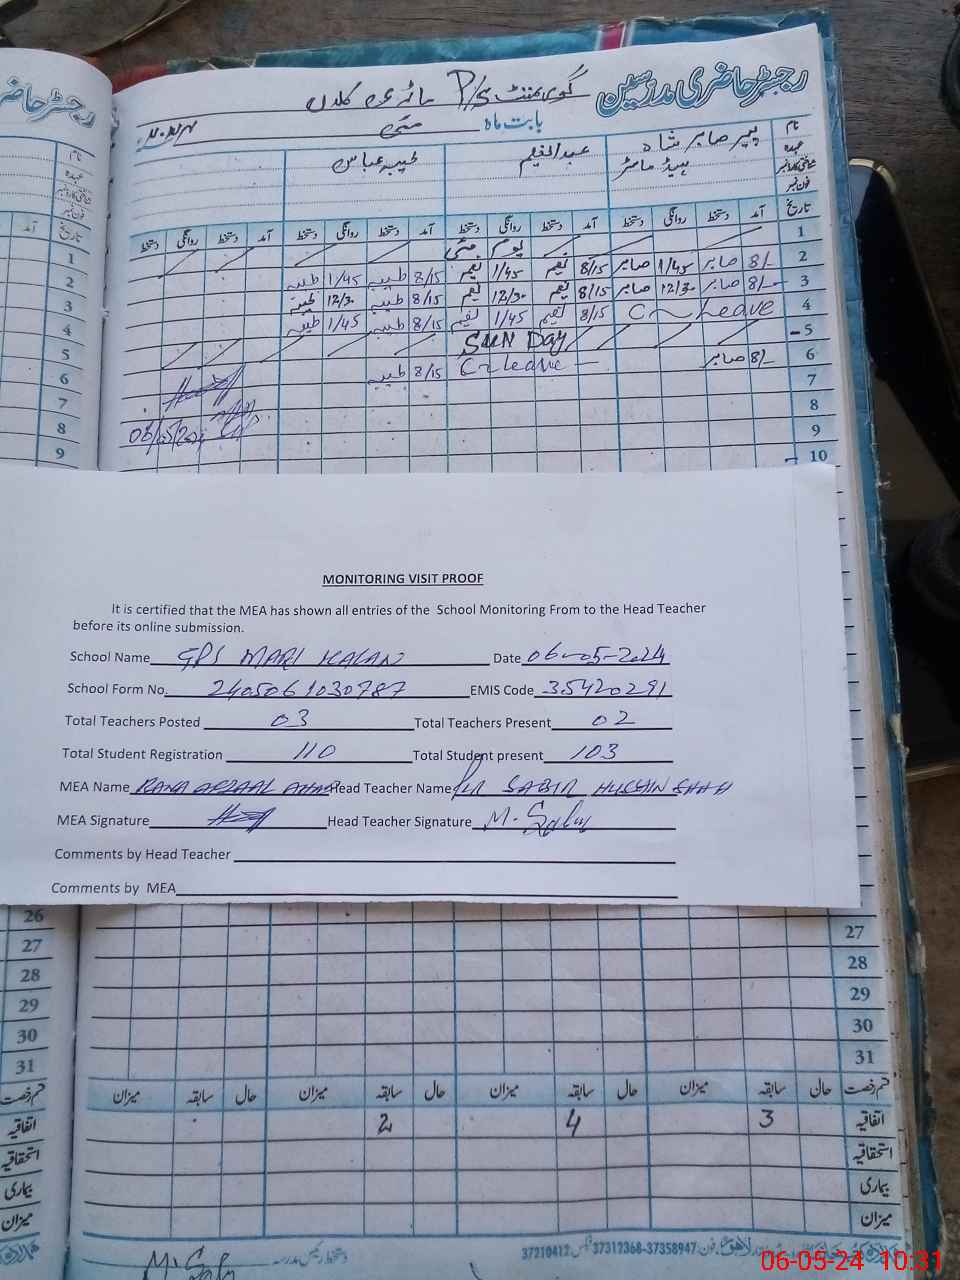 رجسٹر حاضری مدرسین
گورنمنٹ P/S ماڑی کلاں
بابت ماہ مئی
نام پیر صابر شاہ عبدالنعیم طیبہ عباس
عہدہ ہیڈ ماسٹر
شناختی کارڈ نمبر
فون نمبر
تاریخ آمد دستخط روانگی دستخط آمد دستخط روانگی دستخط آمد دستخط روانگی دستخط آمد دستخط روانگی دستخط
1 یوم مئی
2 8/- صابر 1/45 صابر 8/15 نعیم 1/45 نعیم 8/15 طیبہ 1/45 طیبہ
3 8/- صابر 12/30 صابر 8/15 نعیم 12/30 نعیم 8/15 طیبہ 12/30 طیبہ
4 C-Leave 8/15 نعیم 1/45 نعیم 8/15 طیبہ 1/45 طیبہ
5 SUN Day
6 8/- صابر C-leave 8/15 طیبہ
7
8
9
10
MONITORING VISIT PROOF
It is certified that the MEA has shown all entries of the School Monitoring From to the Head Teacher
before its online submission.
School Name GPS MARI KALAN Date 06-05-2024
School Form No. 2405061030787 EMIS Code 35420291
Total Teachers Posted 03 Total Teachers Present 02
Total Student Registration 110 Total Student present 103
MEA Name RANA AFZAAL Head Teacher Name PIR SABIR HUSSAIN SHAH
MEA Signature Head Teacher Signature
Comments by Head Teacher
Comments by MEA
27
28
29
30
31
قسم رخصت حالی سابقہ میزان حال سابقہ میزان حال سابقہ میزان حال سابقہ میزان
اتفاقیہ 3 4 2
استحقاقیہ
بیماری
میزان
دستخط رئیس مدرسہ
فون: 37358947-37312368 فیکس: 37210412
06-05-24 10:31